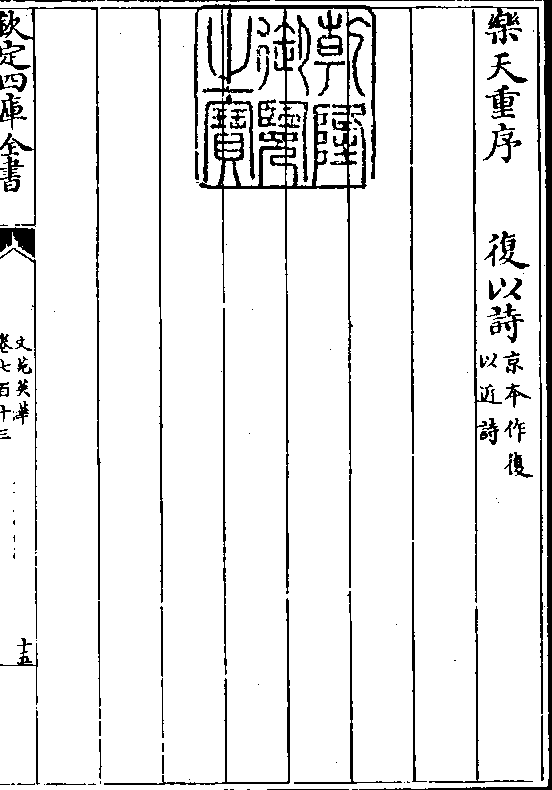 樂天重序　復以詩京本作復以近詩
乾隆御覽之寶
欽定四庫全書
文苑英華
卷七百十三
十五